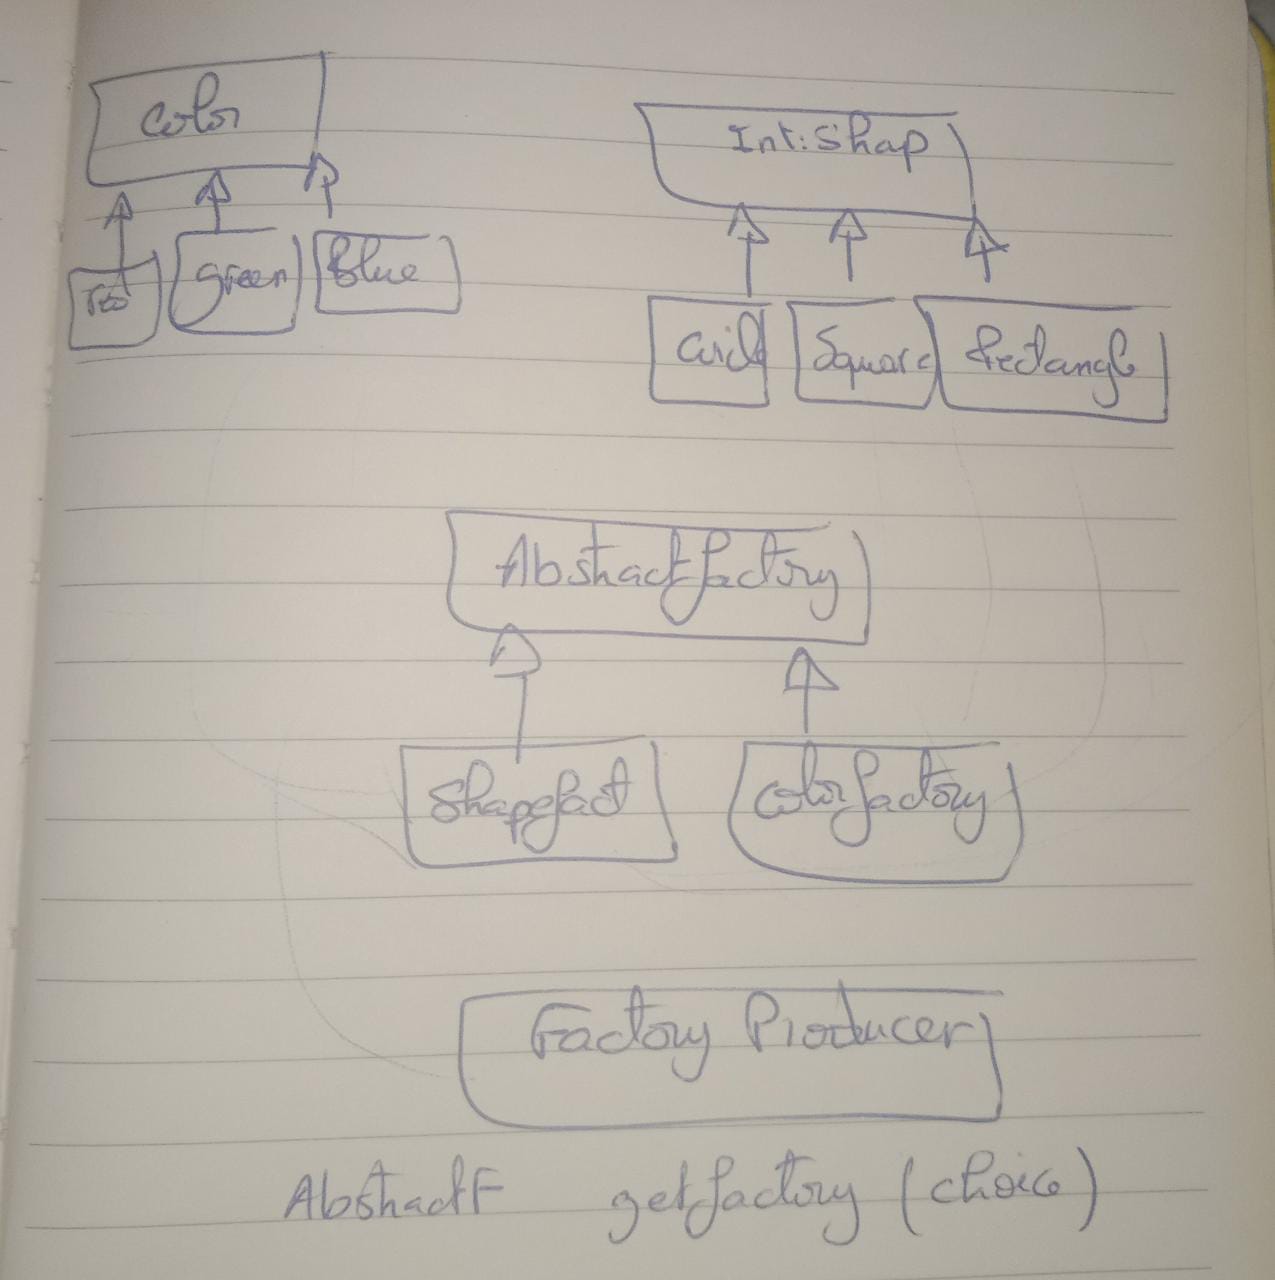 Color
Int: Shap
red
green
Blue
Circle
Square
Rectangle
Abstractfactory
Shapefact
Colorfactory
Factory Producer
AbstractF getfactory (choice)